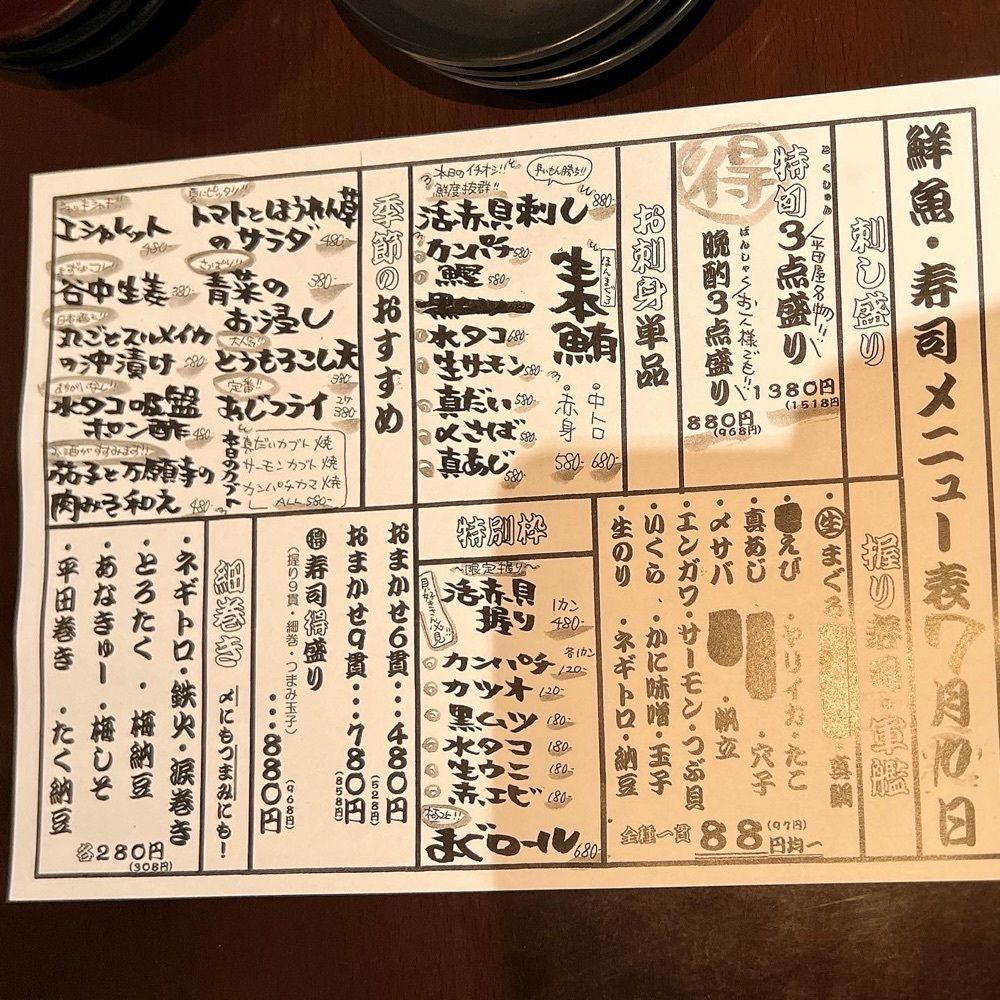 鮮魚・寿司メニュー表7月10日
刺し盛り
得
とくしゅん
特旬3点盛り
平田屋名物!!
1380円
(1518円)
ばんしゃく
晩酌3点盛り
お一人様でも!!
880円
(968円)
お刺身単品
本日のイチオシ!!
鮮度抜群!!
早いもん勝ち!!
活赤貝刺し 880-
カンパチ 580-
鰹 580-
水タコ 680-
生サーモン 580-
真だい 580-
〆さば 580-
真あじ 580-
ほんまぐろ
生本鮪
・中トロ 680-
・赤身 580-
季節のおすすめ
夏にピッタリ!!
トマトとほうれん草
のサラダ 480-
さっぱり!!
青菜の
お浸し 380-
大人気!!
とうもろこし天
380-
定番!!
あじフライ 2ケ 380-
本日のカブト
真だいカブト焼
サーモンカブト焼
カンパチカマ焼
ALL 580-
エシャレット 480-
谷中生姜 380-
丸ごとスルメイカ
の沖漬け 580-
水タコの吸盤
ポン酢 480-
お酒がすすみます!!
茄子と万願寺の
肉みそ和え 480-
握り寿司・軍艦
・生まぐろ
・真鯛
えび
・ヤリイカ・たこ
真あじ
・穴子
・〆サバ
・帆立
・エンガワ・サーモン・つぶ貝
・いくら・かに味噌・玉子
・生のり・ネギトロ・納豆
全種一貫 88円均一
(97円)
特別枠
〜限定握り〜
貝好きさん必見!!
活赤貝
握り 1カン 480-
カンパチ 各1カン 120-
カツオ 120-
黒ムツ 180-
水タコ 180-
生ウニ 180-
赤エビ 180-
まぐロール 680-
おまかせ6貫・・・480円
(528円)
おまかせ9貫・・・780円
(858円)
得 寿司得盛り
(握り9貫・細巻・つまみ玉子)
・・・880円
(968円)
細巻き 〆にもつまみにも!
・ネギトロ・鉄火・涙巻き
・とろたく・梅納豆
・あなきゅー・梅しそ
・平田巻き・たく納豆
各280円
(308円)